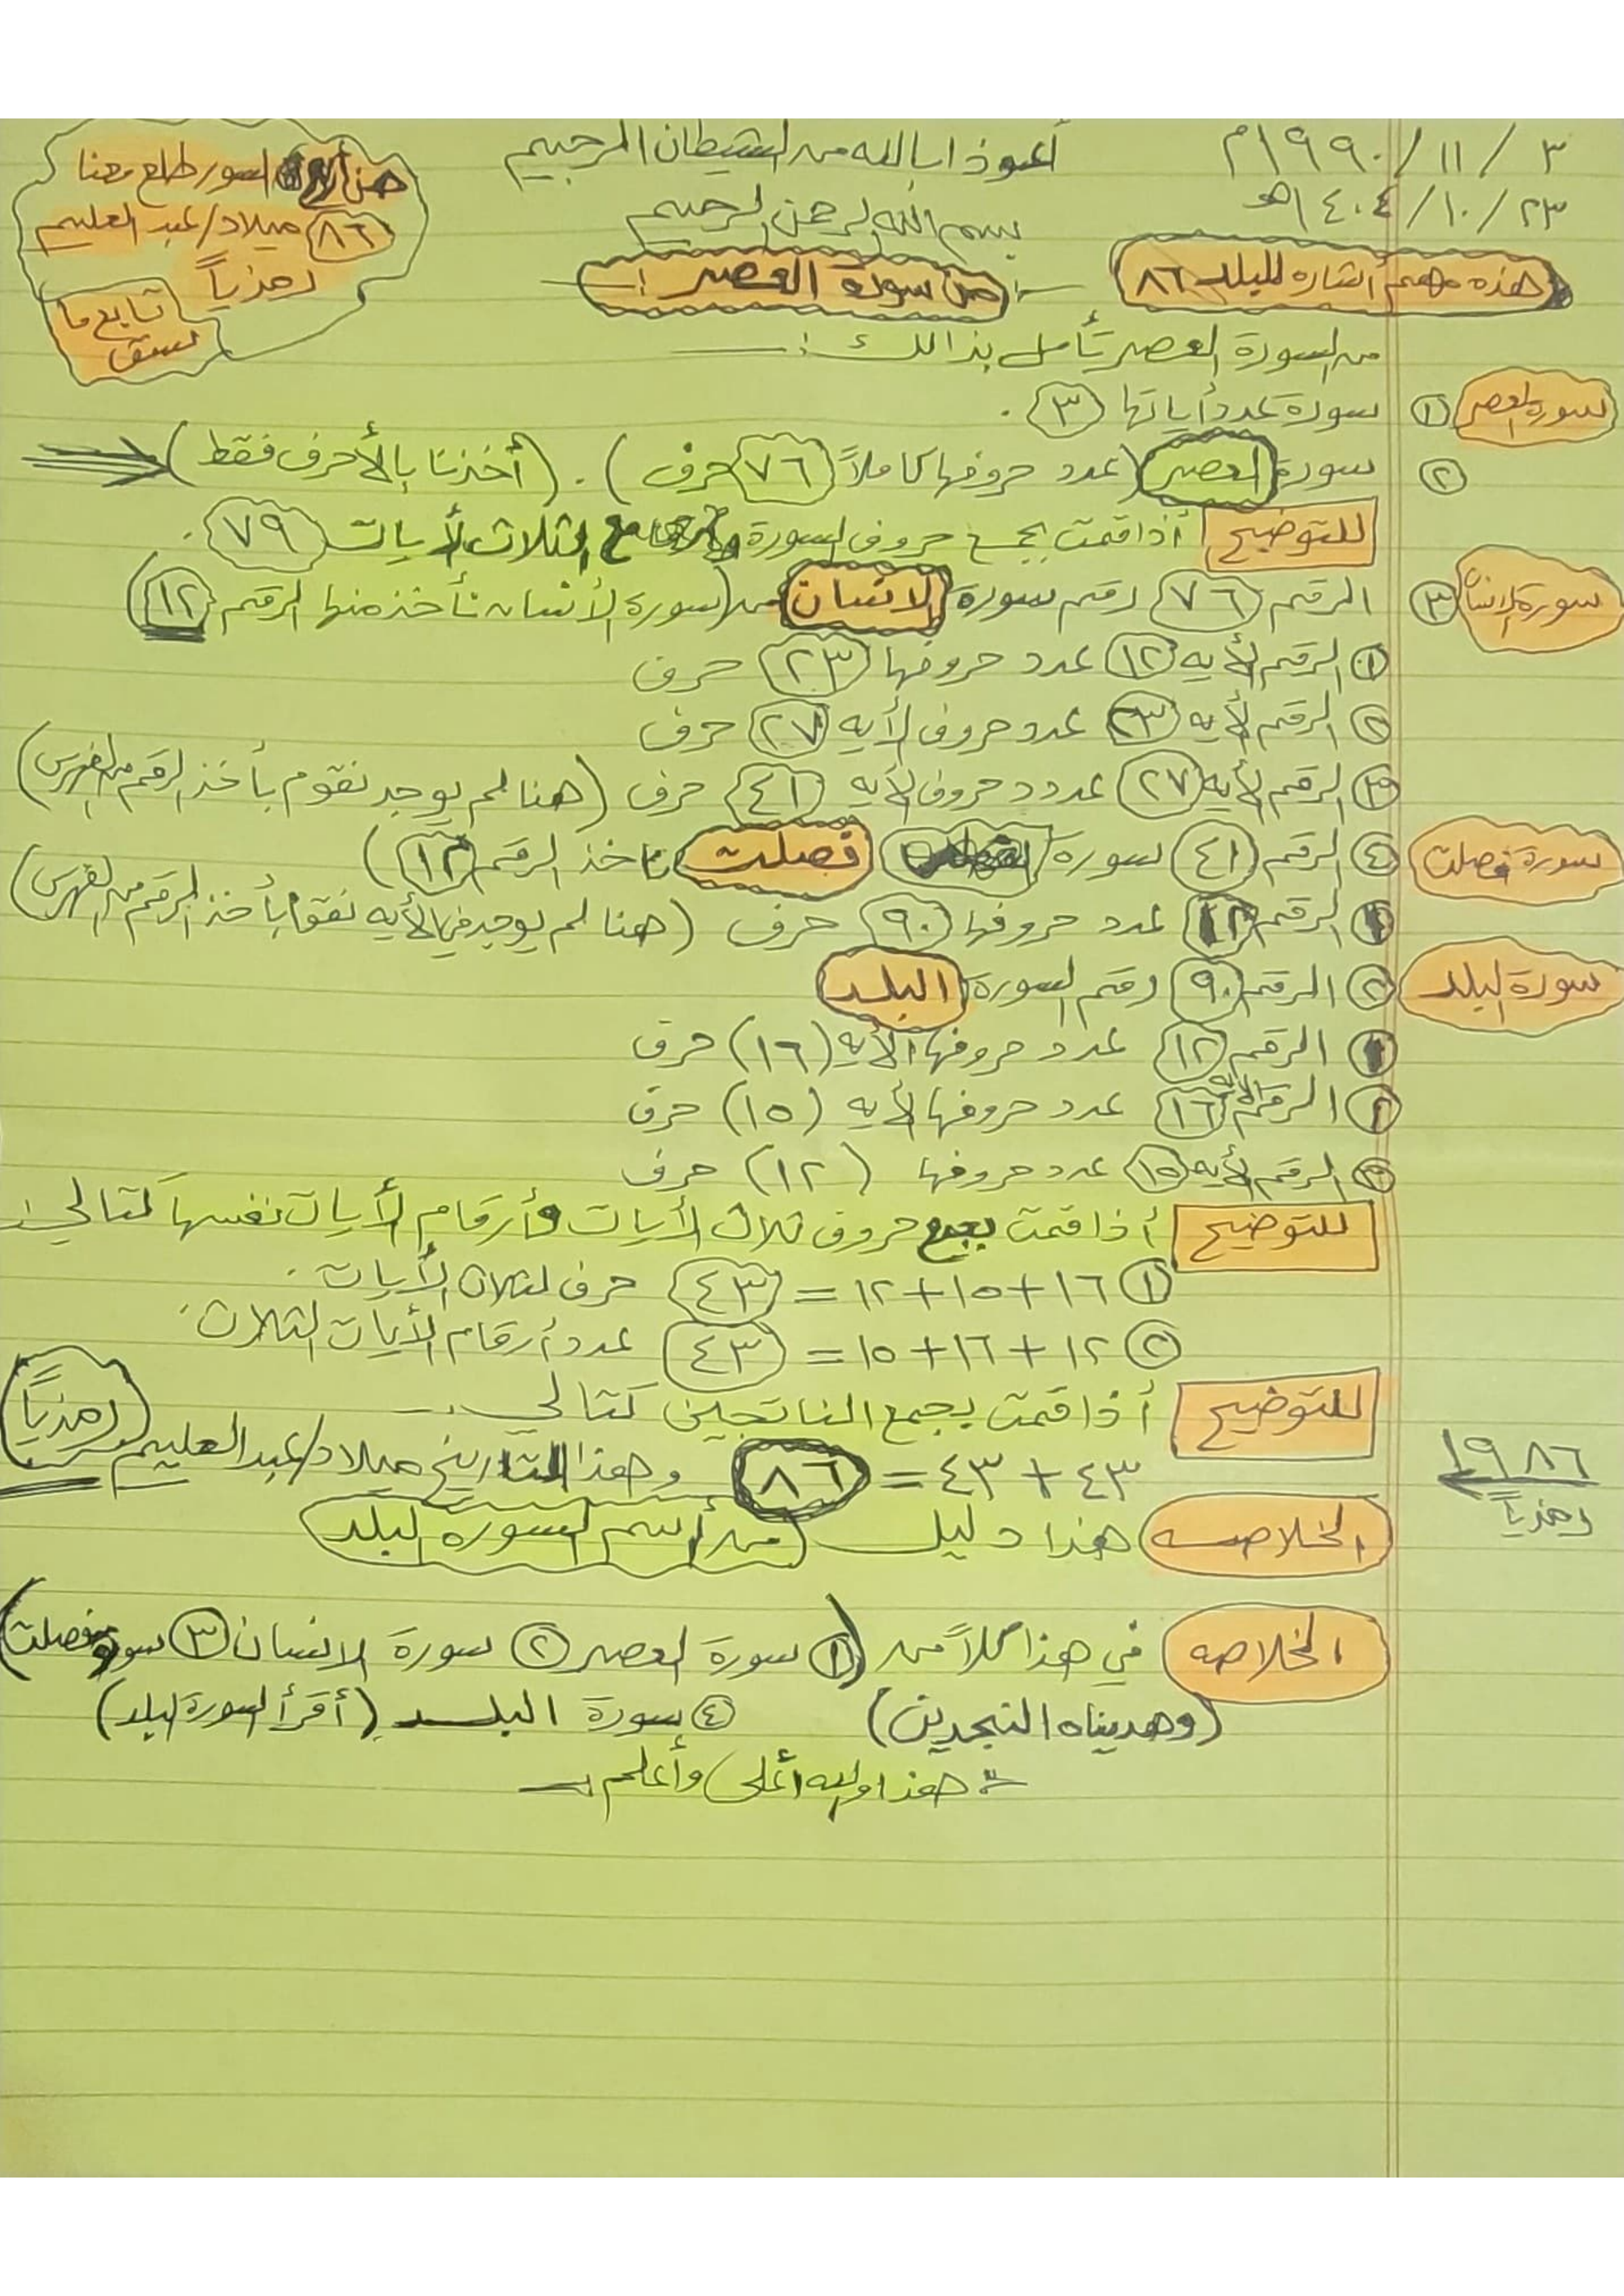 ٣ / ١١ / ١٩٩٠م
٢٣ / ١٠ / ١٤٠٤هـ
أعوذ ابالله من الشيطان الرجيم
بسم الله الرحمن الرحيم
هذه مهمم أشاره للبلد ٨٦
:- من سورة العصر :-
من السور طلع معنا
٨٦ ميلاد/عبد العليم
رمزياً
تابع ما
سبق
من السورة العصر تأمل بذالك :-
سورة العصر ① سورة عدد أياتها ٣ .
② سورة العصر (عدد حروفها كاملاً ٧٦ حرف) . (أخذنا بالأحرف فقط)
للتوضيح أذا قمت بجمع حروف السورة مع الثلاث الأيات ٧٩ .
سورة الانسان ③ الرقم ٧٦ رقم سورة الانسان من (سورة الأنسان نأخذ منها الرقم ١٢)
① الرقم الأيه ١٢ عدد حروفها ٢٣ حرف
② الرقم الأيه ٢٣ عدد حروف الأيه ٢٧ حرف
③ الرقم الأيه ٢٧ عددد حروف الأيه ٤١ حرف (هنا لم يوجد نقوم بأخذ الرقم من الفهرس)
سورة فصلت ④ الرقم ٤١ سورة فصلت (نأخذ الرقم ١٢)
① الرقم ١٢ عدد حروفها ٩٠ حرف (هنا لم يوجد في الأيه نقوم بأخذ الرقم من الفهرس)
سورة البلد ② الرقم ٩٠ رقم السورة البلد
① الرقم ١٢ عدد حروفها الأيه (١٦) حرف
② الرقم الأيه ١٦ عدد حروفها الأيه (١٥) حرف
③ الرقم الأيه ١٥ عدد حروفها (١٢) حرف
للتوضيح أذا قمت بجمع حروف ثلاث الأيات وأرقام الأيات نفسها كتالي :-
① ١٦+١٥+١٢ = ٤٣ حرف لثلاث الأيات .
② ١٢+١٦+١٥ = ٤٣ عدد أرقام الأيات الثلاث .
للتوضيح أذا قمت بجمع الناتجين كتالي :-
٤٣ + ٤٣ = ٨٦ وهذا التاريخ ميلاد/عبد العليم رمزياً
١٩٨٦
رمزياً
الخلاصه هذا دليل من أسم السورة البلد
الخلاصه في هذا كلاً من (① سورة العصر ② سورة الانسان ③ سورة فصلت
④ سورة البلد (أقرأ السورة البلد)
(وهديناه النجدين)
:- هذا والله أعلى وأعلم :-